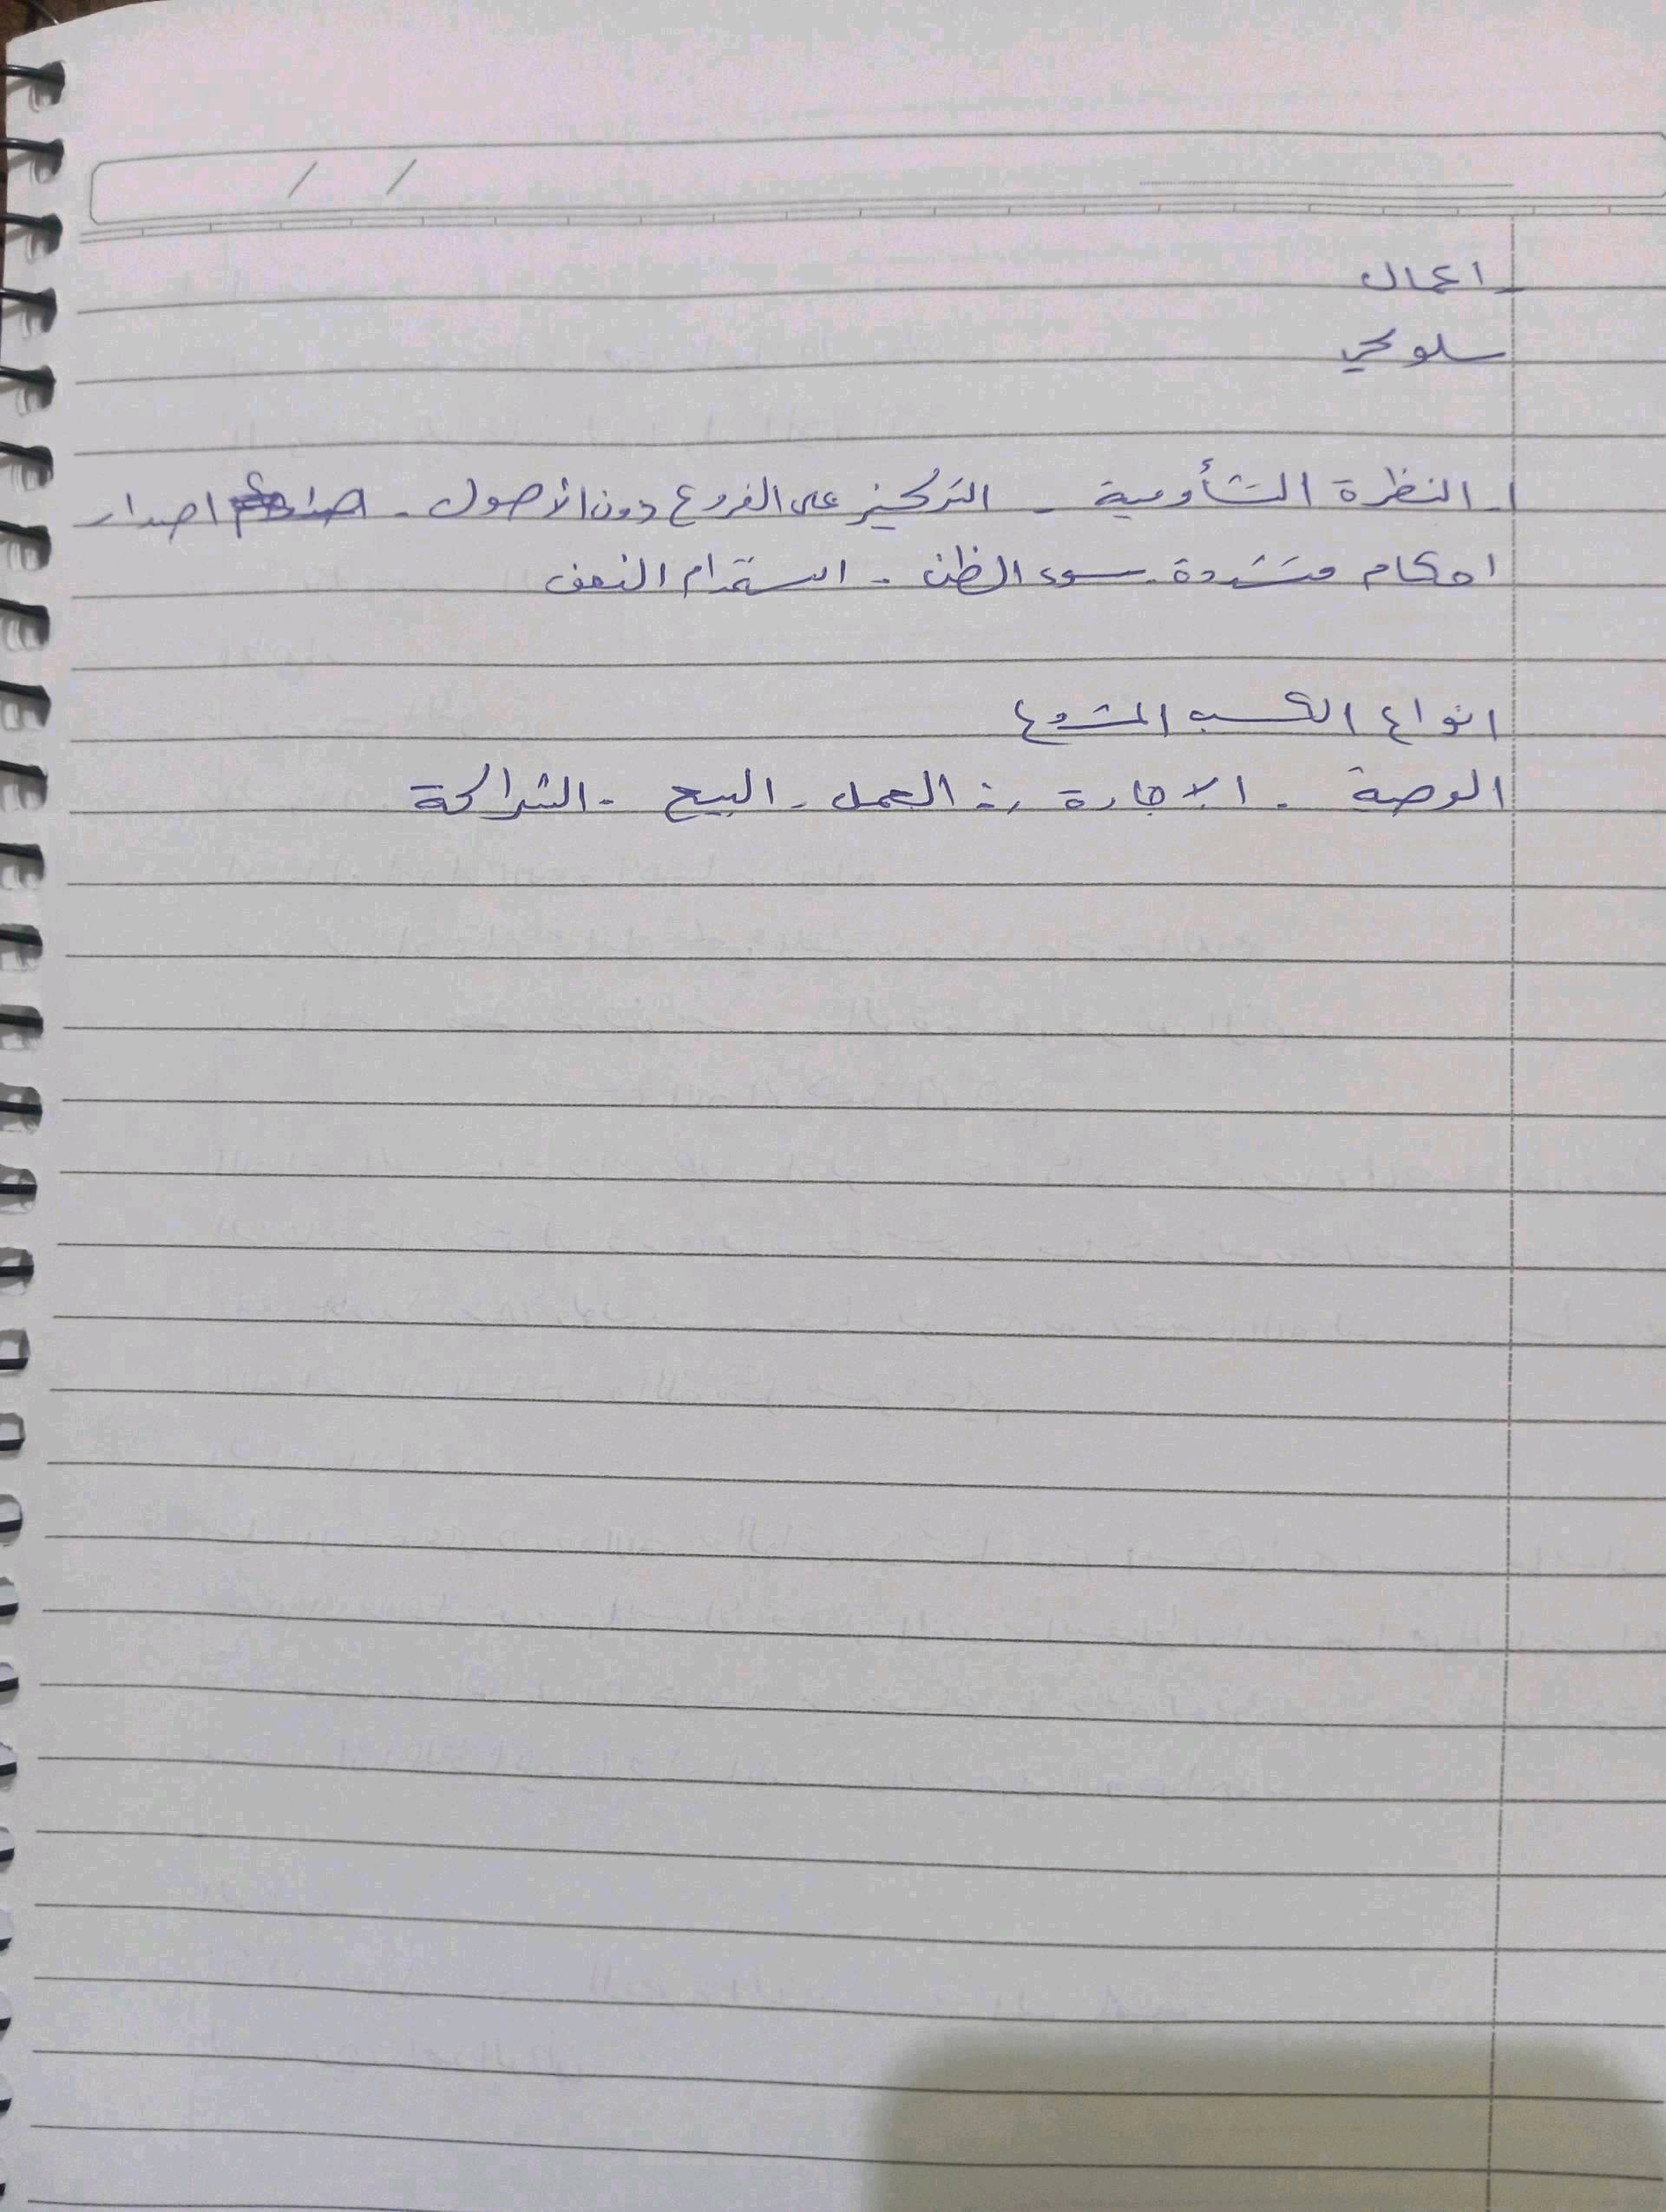 - اعمال
سلوكي
١- النظرة التشأومية - التركيز على الفروع دون الأصول - اصدار
احكام متشددة - سوء الظن - استخدام العنف
انواع الكسب المشروع
الاجارة - العمل - البيع - الشراكة